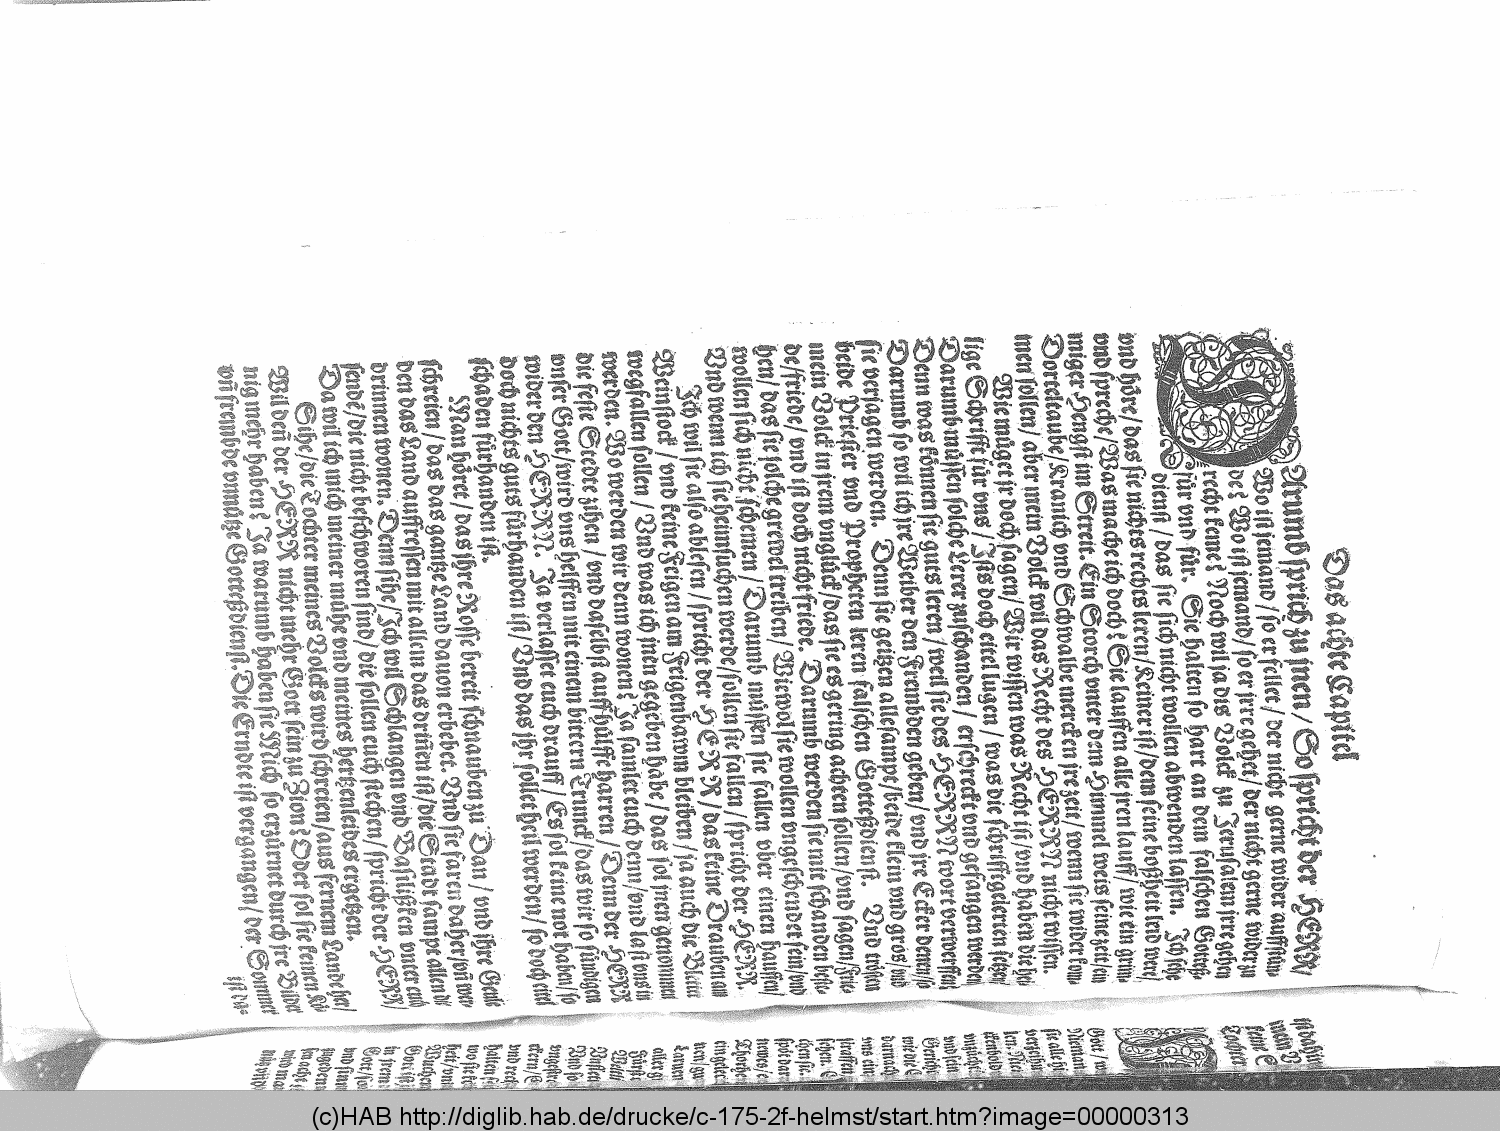 Das achte Capittel
DArumb sprich zu jnen / So spricht der HERR/
Wo ist jemand / so er fellet / der nicht gerne wider auffstün
de? Wo ist jemand / so er jrre gehet / der nicht gerne wider zu
recht keme? Noch wil ja dis Volck zu Jerusalem jrre gehen
für vnd für. Sie halten so hart an dem falschen Gottes-
dienst / das sie sich nicht wollen abwenden lassen. Ich sehe
vnd höre / das sie nichts rechts leren / Keiner ist / dem seine boßheit leid were /
vnd spreche / Was mache ich doch? Sie lauffen alle jren lauff / wie ein grim
miger Hengst im Streit. Ein Storch vnter dem Himmel weis seine zeit / ein
Dorteltaube / Kranich vnd Schwalbe mercken jre zeit / wenn sie wider kom
men sollen / aber mein Volck wil das Recht des HERRN nicht wissen.
Wie müget jr doch sagen / Wir wissen was Recht ist / vnd haben die hei
lige Schrifft für vns / Ists doch eitel lugen / was die schrifftgelerten setzen
Darumb müssen solche Lerer zuschanden / erschreckt vnd gefangen werden
Denn was können sie guts leren / weil sie des HERRN wort verwerffen
Darumb so wil ich jre Weiber den Frembden geben / vnd jre Ecker denen / so
sie verjagen werden. Denn sie geitzen allesampt / beide klein vnd gros / vnd
beide Priester vnd Propheten leren falschen Gottesdienst. Vnd trösten
mein Volck in jrem vnglück / das sie es gering achten sollen / vnd sagen / Frie-
de / friede / vnd ist doch nicht friede. Darumb werden sie mit schanden beste-
hen / das sie solche grewel treiben / Wiewol sie wollen vngeschendet sein / vnd
wollen sich nicht schemen / Darumb müssen sie fallen vber einen hauffen /
Vnd wenn ich sie heimsuchen werde / sollen sie fallen / spricht der HERR.
Ich wil sie also ablesen / spricht der HERR / das keine Drauben am
Weinstock / vnd keine Feigen am Feigenbawm bleiben / ja auch die Bletter
wegfallen sollen / Vnd was ich jnen gegeben habe / das sol jnen genommen
werden. Wo werden wir denn wonen? Ja samlet euch denn / vnd last vns in
die feste Stedte zihen / vnd daselbst auff hülffe harren / Denn der HERR
vnser Gott / wird vns helffen mit einem bittern Trunck / das wir so sündigen
wider den HERRN. Ja verlasset euch drauff / Es sol keine not haben / so
doch nichts guts fürhanden ist / Vnd das jhr sollet heil werden / so doch eitel
schaden fürhanden ist.
Man höret / das jhre Rosse bereit schnauben zu Dan / vnd jhre Geule
schreien / das das gantze Land dauon erbebet. Vnd sie faren daher / vñ wer-
den das Land auffressen mit allem das driñen ist / die Stadt sampt allen die
drinnen wonen. Denn sihe / Ich wil Schlangen vnd Basilisken vnter euch
sende / die nicht beschworen sind / die sollen euch stechen / spricht der HERR /
Da wil ich mich meiner mühe vnd meines hertzenleides ergetzen.
Sihe / die Tochter meines Volcks wird schreien / aus fernem Lande her /
Wil deñ der HERR nicht mehr Gott sein zu Zion? Oder sol sie keinen Kö-
nig mehr haben? Ja warumb haben sie Mich so erzürnet durch jre Bilder
vñ frembde vnnütze Gottesdienst. Die Erndte ist vergangen / der Sommer
ist da-
(c)HAB http://diglib.hab.de/drucke/c-175-2f-helmst/start.htm?image=00000313